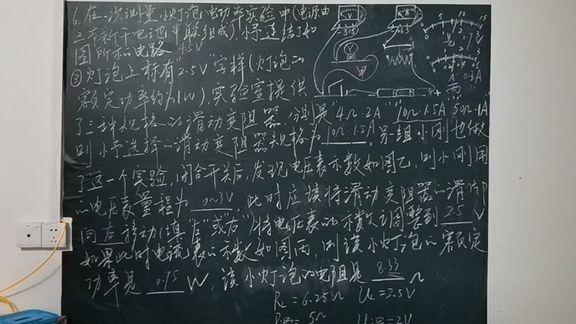 6.在一次测量小灯泡电功率实验中(电源由
三节新干电池串联组成)小怿连结如
图所示电路 4.5V
③灯泡上标有"2.5V"字样(灯泡的
额定功率约为1W),实验室提供
了三种规格的滑动变阻器,分别是"4Ω 2A""10Ω 1.5A""50Ω 1A"
则小怿选择的滑动变阻器规格为10Ω 1.5A,另组小刚也做
了这一个实验,闭合开关后,发现电压表示数如图乙,则小刚用
的电压表量程为 0~3V 此时应该将滑动变阻器的滑片
向右移动(填"左"或"右")将电压表的示数调整到2.5V
如果此时电流表示数如图丙,则该小灯泡的额定
功率是 0.75 W,该小灯泡的电阻是 8.33 Ω
R_L=6.25Ω U_L=2.5V
=5Ω =2V